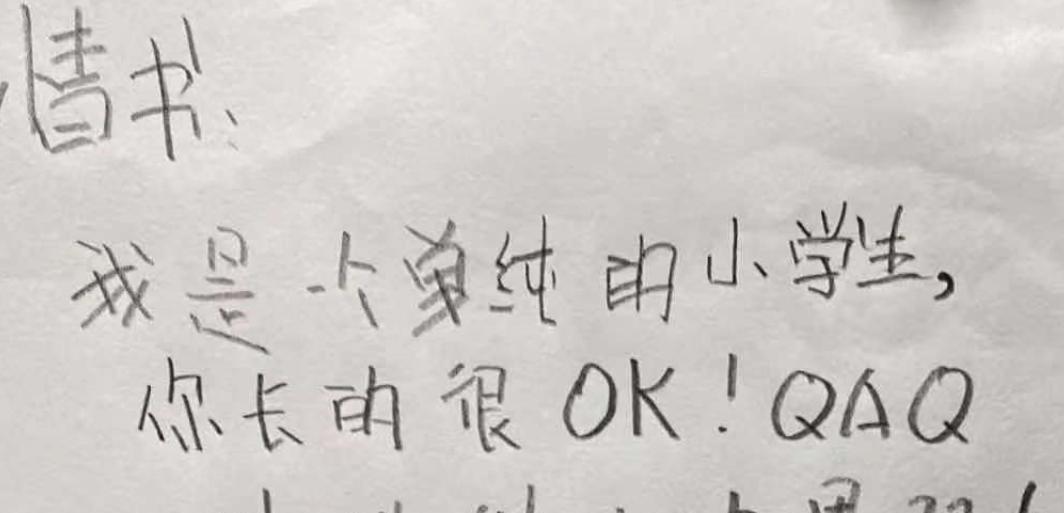 情书、
我是一个单纯的小学生,
你长的很OK!QAQ